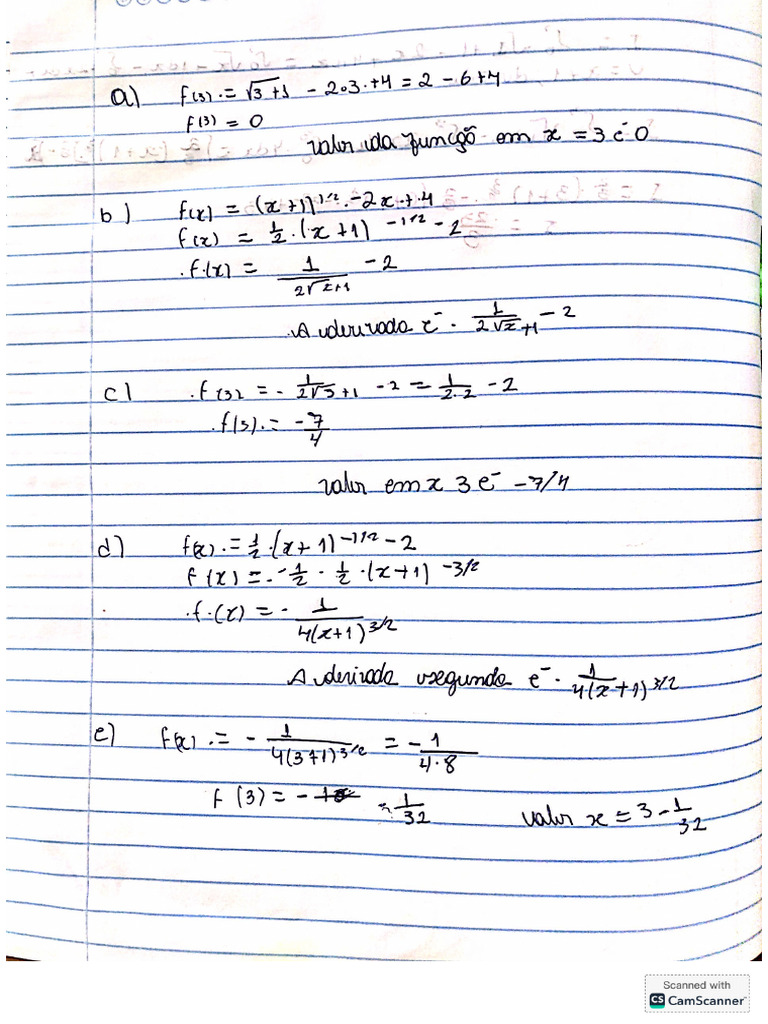 a) f(3) = √3+1 - 2·3+4 = 2 - 6+4
f(3) = 0
Valor da função em x = 3 é 0
b) f(x) = (x+1)^1/2 - 2x+4
f(x) = 1/2·(x+1)^-1/2 - 2
f(x) = 1/2√x+1 - 2
A derivada é 1/2√x+1 - 2
c) f(3) = 1/2√3+1 - 2 = 1/2·2 - 2
f(3) = -7/4
Valor em x 3 é -7/4
d) f(x) = 1/2·(x+1)^-1/2 - 2
f(x) = -1/2 · 1/2·(x+1)^-3/2
f(x) = - 1/4(x+1)^3/2
A derivada segunda é - 1/4(x+1)^3/2
e) f(x) = - 1/4(3+1)^3/2 = - 1/4·8
f(3) = - 1/32
Valor x = 3 - 1/32
Scanned with
CS CamScanner